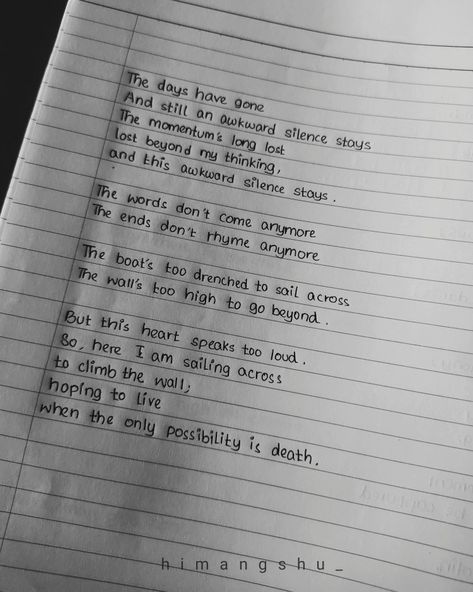 The days have gone
And still an awkward silence stays
The momentum's long lost
lost beyond my thinking,
and this awkward silence stays.
The words don't come anymore
The ends don't rhyme anymore
The boat's too drenched to sail across
The wall's too high to go beyond.
But this heart speaks too loud.
So, here I am sailing across
to climb the wall;
hoping to live
when the only possibility is death.
himangshu_